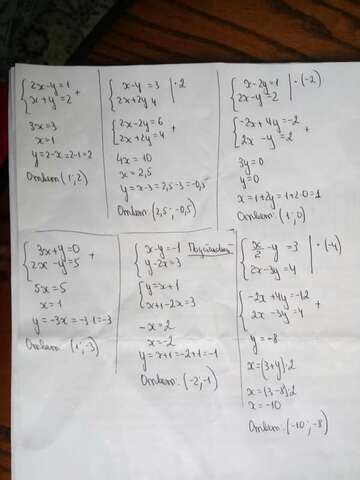 {2x-y=1
x+y=2 +
3x=3
x=1
y=2-x=2-1=2
Ответ: (1;2)
{x-y=3 |·2
2x+2y 4
{2x-2y=6
2x+2y=4 +
4x=10
x=2,5
y=x-3=2,5-3=-0,5
Ответ: (2,5;-0,5)
{x-2y=1 |·(-2)
2x-y=2
{-2x+4y=-2
2x-y=2 +
3y=0
y=0
x=1+2y=1+2·0=1
Ответ: (1;0)
{3x+y=0
2x-y=5 +
5x=5
x=1
y=-3x=-3·1=-3
Ответ: (1;-3)
{x-y=-1
y-2x=3
{y=x+1
x+1-2x=3
-x=2
x=-2
y=x+1=-2+1=-1
Ответ: (-2;-1)
{x/2-y=3 |·(-4)
2x-3y=4
{-2x+4y=-12
2x-3y=4 +
y=-8
x=(3+y)·2
x=(3-8)·2
x=-10
Ответ: (-10;-8)